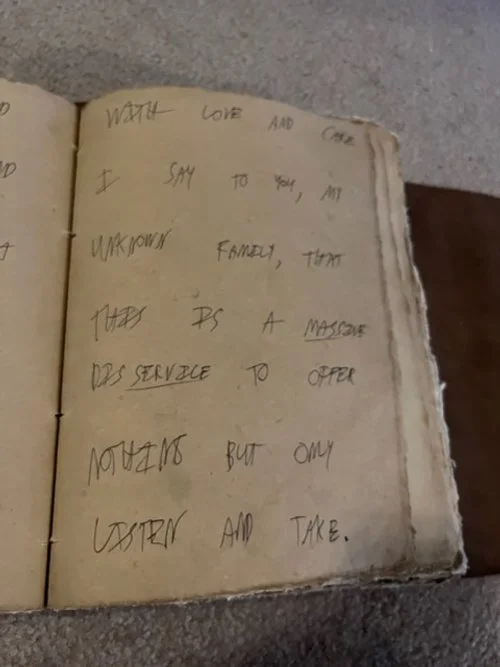 WITH LOVE AND CARE
I SAY TO YOU, MY
UNKNOWN FAMILY, THAT
THIS IS A MASSIVE
DISSERVICE TO OFFER
NOTHING BUT ONLY
LISTEN AND TAKE.